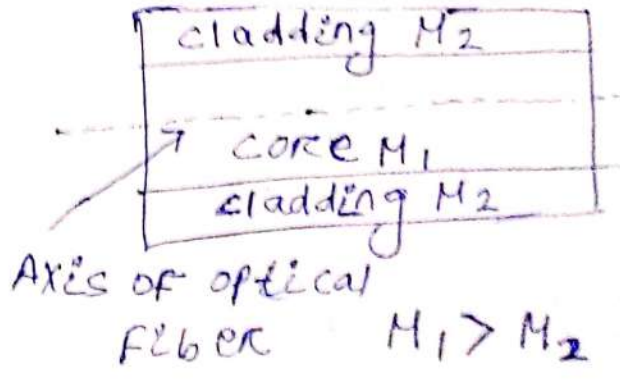 cladding M₂
core M₁
cladding M₂
Axis of optical
Fiber M₁ > M₂